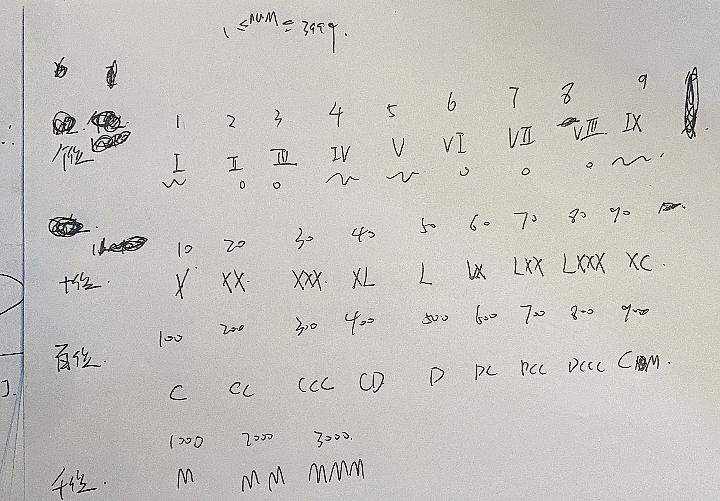 1 ≤ num ≤ 3999.
1 2 3 4 5 6 7 8 9
个位 I II III IV V VI VII VIII IX
10 20 30 40 50 60 70 80 90
十位. X XX XXX. XL L LX LXX LXXX XC.
100 200 300 400 500 600 700 800 900
百位. C CC CCC CD D DC DCC DCCC CM.
1000 2000 3000.
千位. M MM MMM